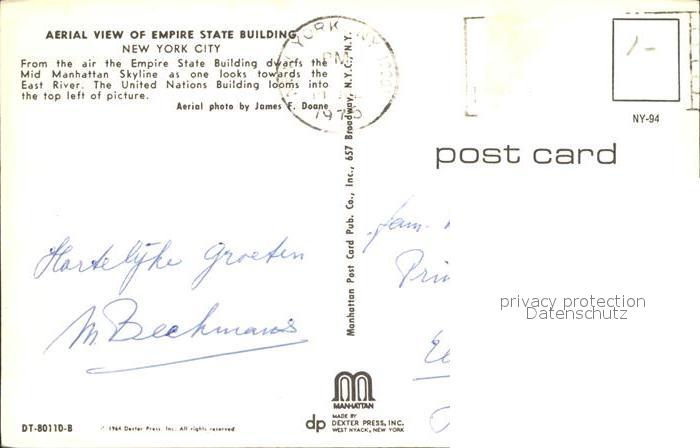 AERIAL VIEW OF EMPIRE STATE BUILDING
NEW YORK CITY
From the air the Empire State Building dwarfs the
Mid Manhattan Skyline as one looks towards the
East River. The United Nations Building looms into
the top left of picture.
Aerial photo by James F. Doane
YORK, N.Y.
PM
Manhattan Post Card Pub. Co., Inc., 657 Broadway, N.Y.C., N.Y.
1-
NY-94
post card
Hartelijke Groeten
M. Beekmans
fam.
Prin
privacy protection
Datenschutz
MANHATTAN
dp MADE BY
DEXTER PRESS, INC.
WEST NYACK, NEW YORK
DT-80110-B
© 1964 Dexter Press, Inc. All rights reserved